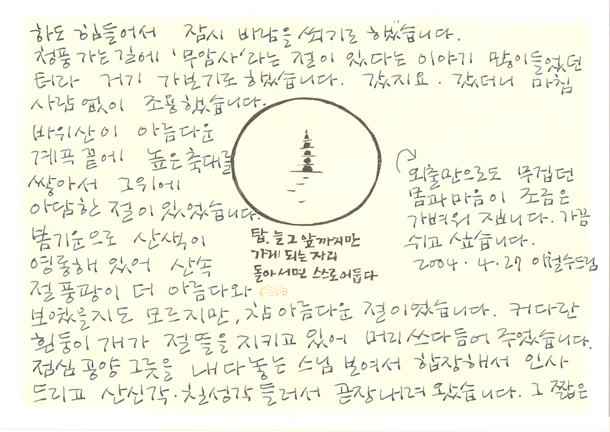 하도 힘들어서 잠시 바람을 쐬기로 했습니다.
청풍 가는 길에 '무암사'라는 절이 있다는 이야기 많이 들었던
터라 거기 가보기로 했습니다. 갔지요. 갔더니 마침
사람 없이 조용했습니다.
바위산이 아름다운
계곡 끝에 높은 축대를
쌓아서 그 위에
아담한 절이 있었습니다.
봄기운으로 산색이
영롱해 있어 산속
절 풍광이 더 아름다와
보였을지도 모르지만, 참 아름다운 절이었습니다. 커다란
흰둥이 개가 절 뜰을 지키고 있어 머리 쓰다듬어 주었습니다.
점심 공양 그릇을 내다 놓는 스님 보여서 합장해서 인사
드리고 산신각·칠성각 들러서 곧장 내려왔습니다. 그 짧은
외출만으로도 무겁던
몸과 마음이 조금은
가벼워집니다. 가끔
쉬고 싶습니다.
2004. 4. 27 이철수드림
탑, 늘 그 앞까지만
가게 되는 자리
돌아서면 스스로 어둡다